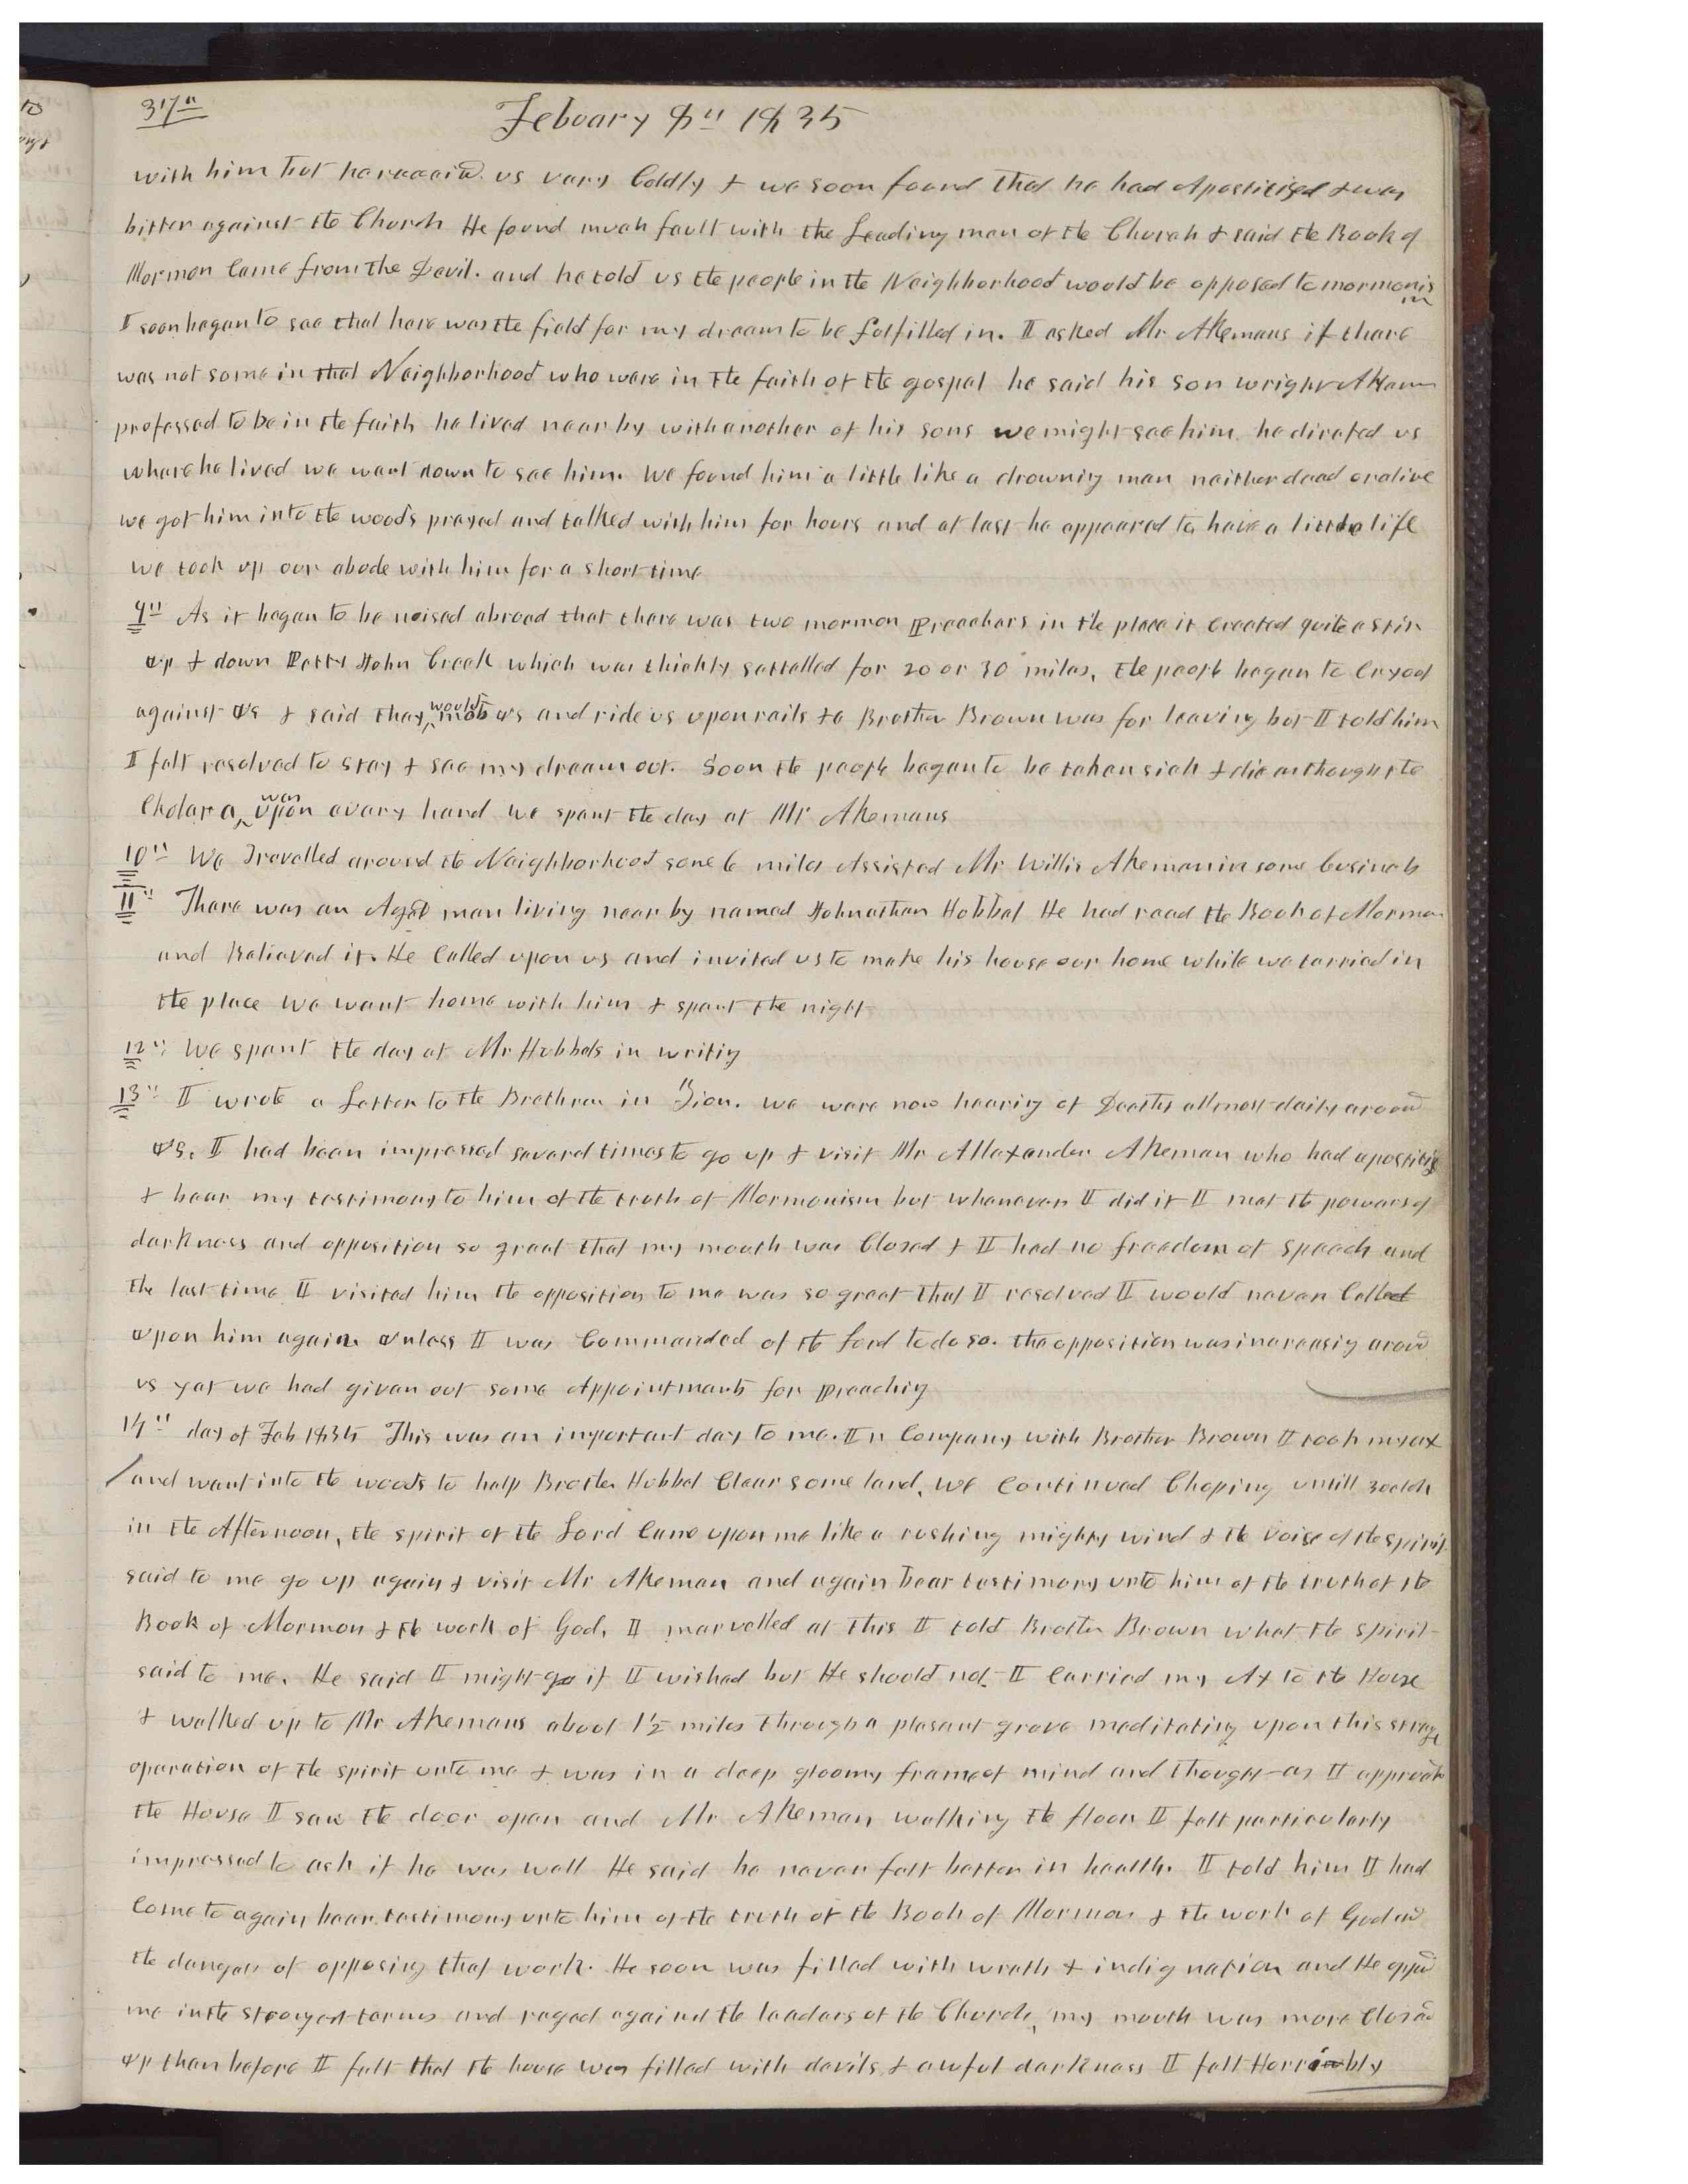 37"
Febuary 8" 1835
with him but he receivd us very Coldly & we soon found that he had Apostitised & was
bitter against the Church He found much fault with the Leading men of the Church & said the Book of
Mormon Came from the Devil. and he told us the people in the Neighborhood would be opposed to mormonis
m
I soon began to see that here was the field for my dream to be fulfilled in. I asked Mr Akemans if there
was not some in that Neighborhood who were in the faith of the gospel he said his son wright Akeman
professed to be in the faith he lived near by with another of his sons we might see him. he dirated us
whare he lived we went down to see him. We found him a little like a drowning man neither dead or alive
we got him into the woods prayed and talked with him for hours and at last he appeared to have a little life
we took up our abode with him for a short time
9" As it began to be noised abroad that there was two mormon Preachers in the place it Created quite a stir
up & down Petty John Creek which was thickly settelled for 20 or 30 miles, the people began to Cry out
against us & said they would mob us and ride us upon rails &c Brother Brown was for leaving but I told him
I felt resolved to stay & see my dream out. Soon the people began to be taken sick & die as though the
Cholera was upon evary hand we spent the day at Mr Akemans
10" We Travelled around the Neighborhood some 6 miles Assisted Mr Willis Akeman in some business
11" There was an Aged man living near by named Johnathan Hubbel He had read the Book of Mormon
and Believed it. He Called upon us and invited us to make his house our home while we tarried in
the place We went home with him & spent the night
12" We spent the day at Mr Hubbels in writing
13" I wrote a Letter to the Brethren in Zion. we were now hearing of Deaths allmost daily around
us. I had been impressed several times to go up & visit Mr Allexander Akeman who had apostitis
& bear my testimony to him of the truth of Mormonism but whenever I did it I met the powers of
darkness and opposition so great that my mouth was Closed & I had no freedom of speech and
the last time I visited him the opposition to me was so great that I resolved I would never Called
upon him again unless I was Commanded of the Lord to do so. the opposition was increasing around
us yet we had given out some Appointments for Preaching
14" day of Feb 1835 This was an important day to me. In Company with Brother Brown I took my ax
and went into the woods to help Brother Hubbel Clear some land, we Continued Choping untill 3 oclok
in the Afternoon, the spirit of the Lord Came upon me like a rushing mighty wind & the voice of the spirit
said to me go up again & visit Mr Akeman and again bear testimony unto him of the truth of the
Book of Mormon & the work of God, I marvelled at this I told Brother Brown what the spirit
said to me. He said I might go if I wished but He should not. I Carried my Ax to the House
& walked up to Mr Akemans about 1½ miles through a plesant grove meditating upon this strange
operation of the spirit unto me & was in a deep gloomy frame of mind and thought as I approach
the House I saw the door open and Mr Akeman walking the floor I felt particularly
impressed to ask if he was well He said he never felt better in health. I told him I had
Come to again bear testimony unto him of the truth of the Book of Mormon & the work of God and
the danger of opposing that work. He soon was filled with wrath & indignation and He opposd
me in the strongest terms and raged against the leaders of the Church, my mouth was more Closed
up than before I felt that the house was filled with devils & awful darkness I felt Horribly